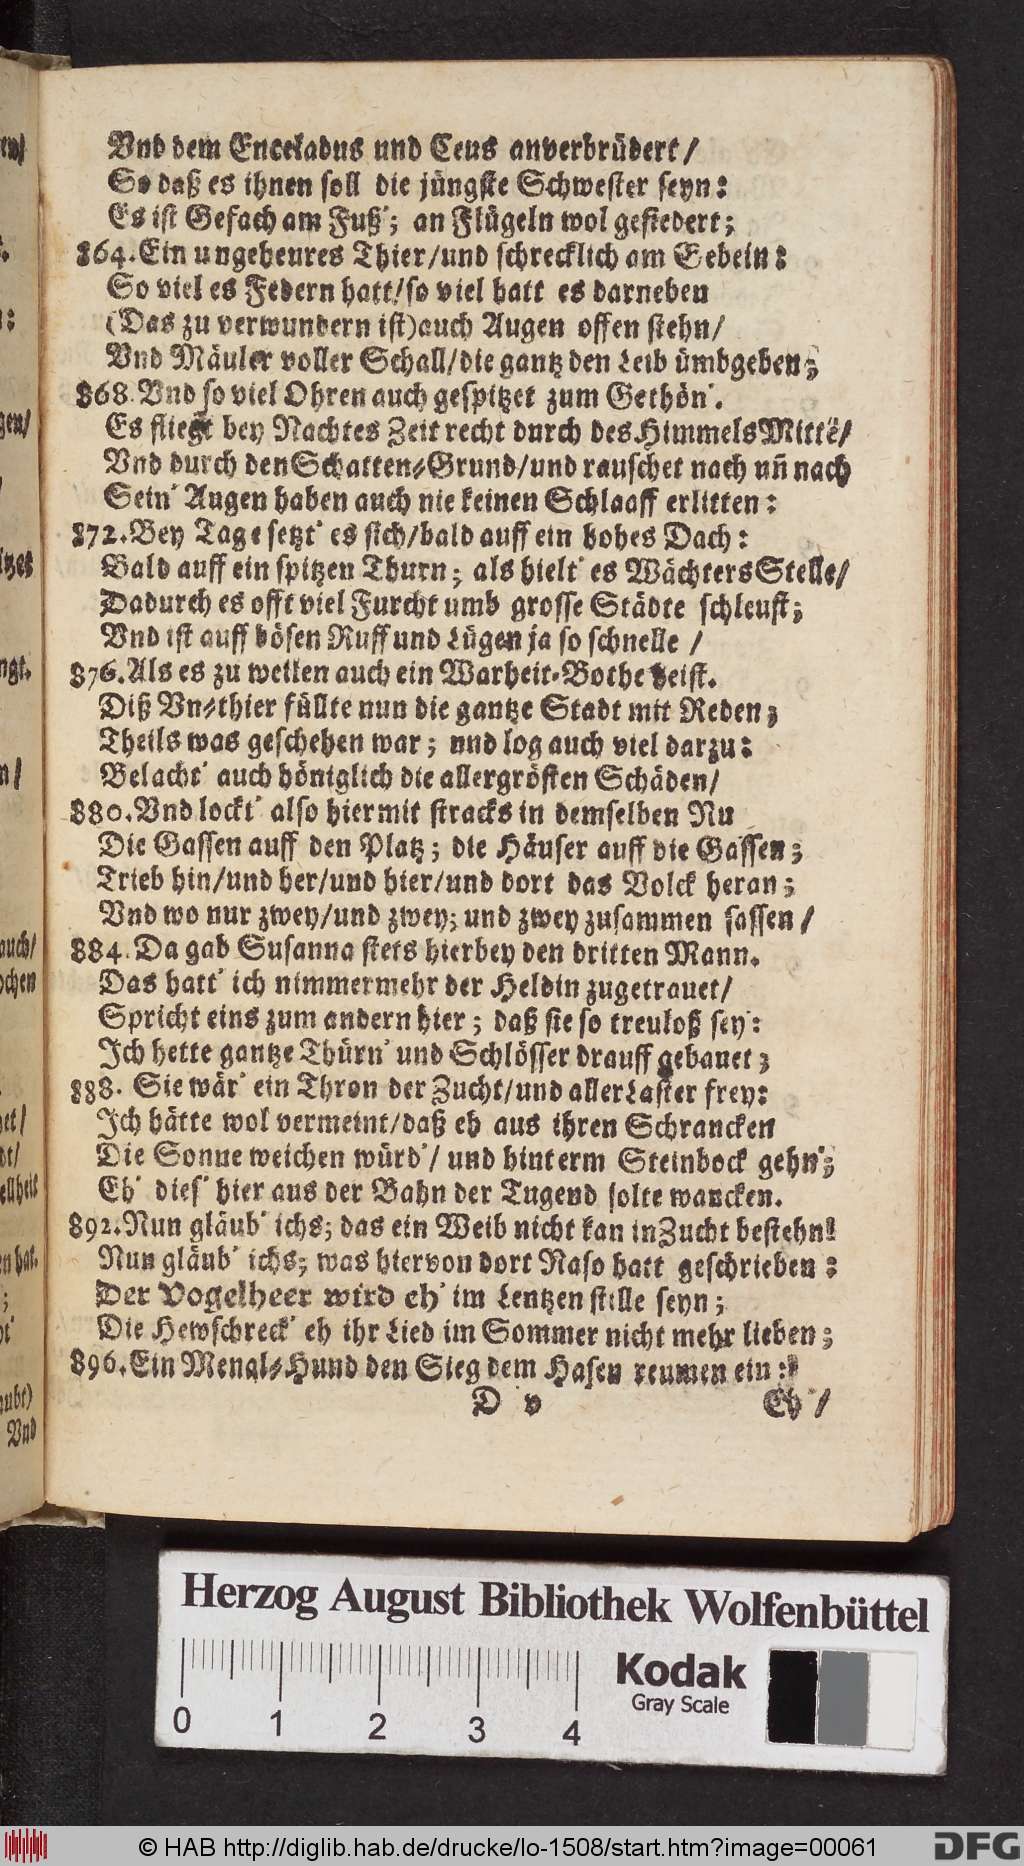 Vnd dem Enceladus und Ceus anverbrüdert /
So daß es ihnen soll die jüngste Schwester seyn:
Es ist Gefach am Fuß'; an Flügeln wol gefiedert;
864. Ein ungeheures Thier / und schrecklich am Gebein:
So viel es Federn hatt / so viel hatt es darneben
(Das zu verwundern ist) auch Augen offen stehn /
Vnd Mäuler voller Schall / die gantz den Leib ümbgeben;
868. Vnd so viel Ohren auch gespitzet zum Gethön'.
Es fliegt bey Nachtes Zeit recht durch des Himmels Mitte /
Vnd durch den Schatten-Grund / und rauschet nach uñ nach
Sein' Augen haben auch nie keinen Schlaaff erlitten:
872. Bey Tage setzt' es sich / bald auff ein hohes Dach:
Bald auff ein spitzen Thurn; als hielt' es Wächters Stelle /
Dadurch es offt viel Furcht umb grosse Städte schleust;
Vnd ist auff bösen Ruff und Lügen ja so schnelle /
876. Als es zu weilen auch ein Warheit-Bothe heist.
Diß Vn-thier füllte nun die gantze Stadt mit Reden;
Theils was geschehen war; und log auch viel darzu:
Belacht' auch höniglich die allergrösten Schäden /
880. Vnd lockt' also hiermit stracks in demselben Nu
Die Gassen auff den Platz; die Häuser auff die Gassen;
Trieb hin / und her / und hier / und dort das Volck heran;
Vnd wo nur zwey / und zwey; und zwey zusammen sassen /
884. Da gab Susanna stets hierbey den dritten Mann.
Das hatt' ich nimmermehr der Heldin zugetrauet /
Spricht eins zum andern hier; daß sie so treuloß sey':
Ich hette gantze Thürn' und Schlösser drauff gebauet;
888. Sie wär' ein Thron der Zucht / und aller Laster frey:
Ich hätte wol vermeint / daß eh aus ihren Schrancken
Die Sonne weichen würd' / und hinterm Steinbock gehn';
Eh' dies' hier aus der Bahn der Tugend solte wancken.
892. Nun gläub' ichs; das ein Weib nicht kan in Zucht bestehn!
Nun gläub' ichs; was hiervon dort Naso hatt geschrieben:
Der Vogelheer wird eh' im Lentzen stille seyn;
Die Hewschreck' eh ihr Lied im Sommer nicht mehr lieben;
896. Ein Mengl-Hund den Sieg dem Hasen reumen ein:
D v Eh' /
Herzog August Bibliothek Wolfenbüttel
Kodak
Gray Scale
0 1 2 3 4
© HAB http://diglib.hab.de/drucke/lo-1508/start.htm?image=00061
DFG